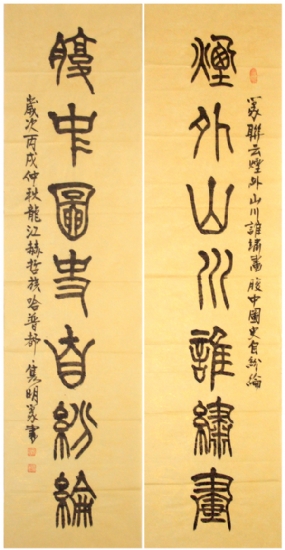 篆聯云煙外山川誰繡畫腹中圖史自紛綸
煙外山川誰繡畫
腹中圖史自紛綸
歲次丙戌仲秋龍江赫哲族哈普都·雋明篆書